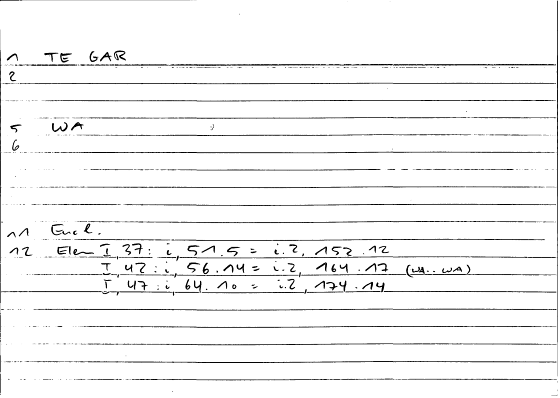 1 TE GAR
2
5 WA
6
11 Eucl.
12 Elem I, 37 : i, 51.5 = i.2, 152.12
I, 42 : i, 56.14 = i.2, 164.17 (WA.. WA)
I, 47 : i, 64.10 = i.2, 174.14